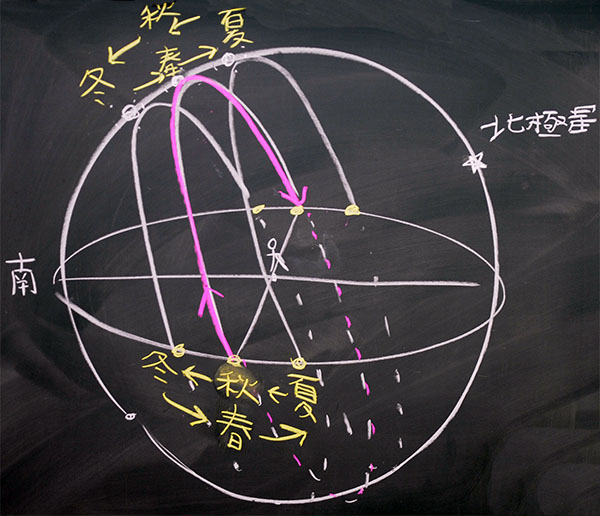 秋
冬 春 夏
北極星
南
冬 秋 夏
春